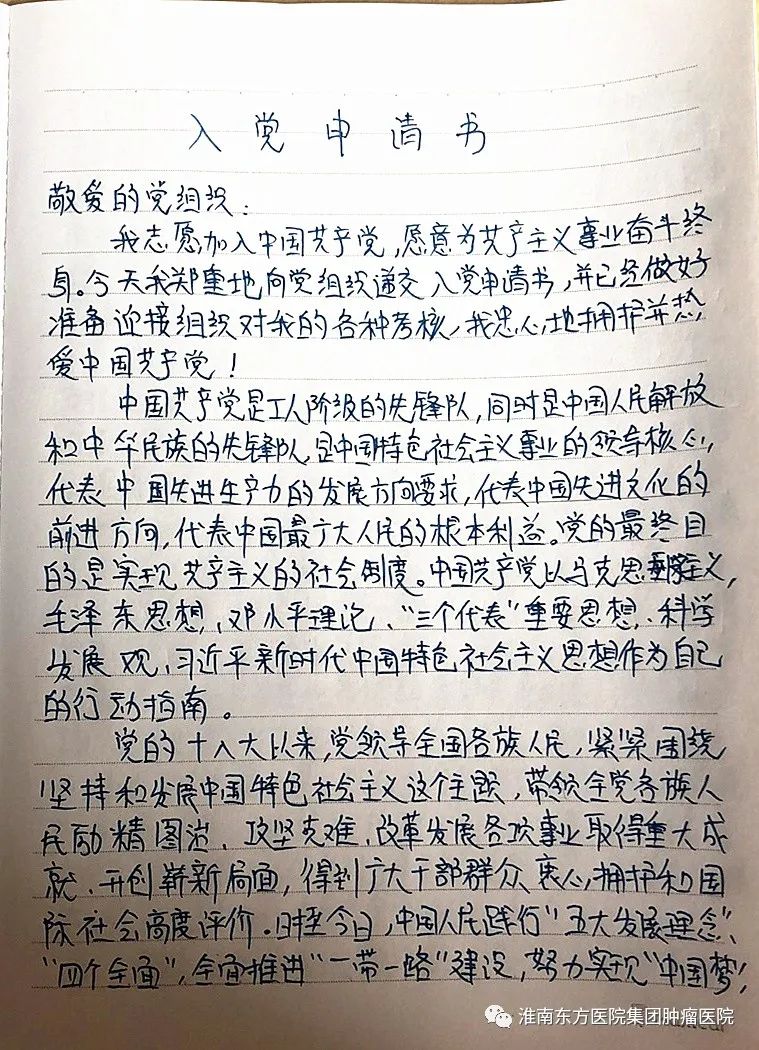 入党申请书
敬爱的党组织:
我志愿加入中国共产党,愿意为共产主义事业奋斗终
身。今天我郑重地向党组织递交入党申请书,并已经做好
准备迎接组织对我的各种考核,我忠心地拥护并热
爱中国共产党!
中国共产党是工人阶级的先锋队,同时是中国人民解放
和中华民族的先锋队,是中国特色社会主义事业的领导核心,
代表中国先进生产力的发展方向要求,代表中国先进文化的
前进方向,代表中国最广大人民的根本利益。党的最终目
的是实现共产主义的社会制度。中国共产党以马克思主义,
毛泽东思想、邓小平理论、“三个代表”重要思想、科学
发展观、习近平新时代中国特色社会主义思想作为自己
的行动指南。
党的十八大以来,党领导全国各族人民,紧紧围绕
坚持和发展中国特色社会主义这个主题,带领全党各族人
民励精图治、攻坚克难,改革发展各项事业取得重大成
就、开创崭新局面,得到广大干部群众衷心拥护和国
际社会高度评价。时至今日,中国人民践行“五大发展理念”、
“四个全面”,全面推进“一带一路”建设,努力实现“中国梦”,
淮南东方医院集团肿瘤医院